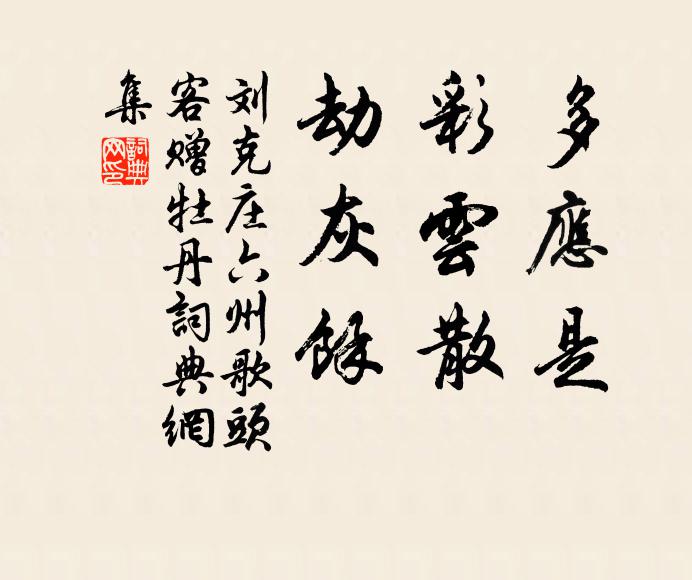 多應是
彩雲散
劫灰餘
刘克庄六州歌頭
客赠牡丹詞典網
集
詞典网印